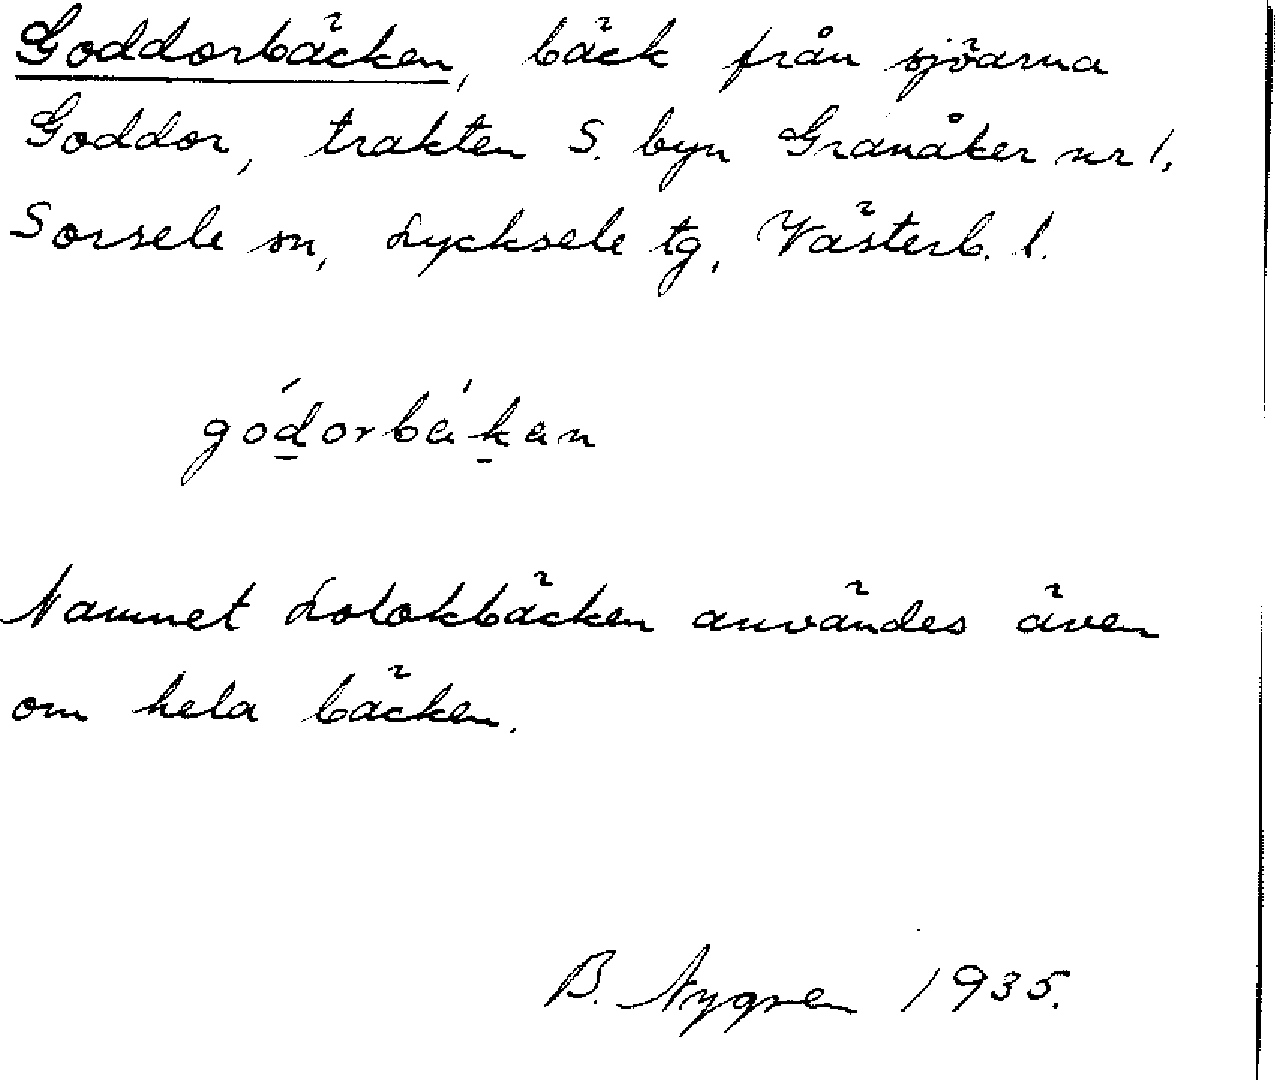 Goddorbäcken, bäck från sjöarna
Goddor, trakten S. byn Granåker nr 1,
Sorsele sn, Lycksele tg, Västerb. l.
gódorbákan
Namnet Lolokbäcken användes även
om hela bäcken.
B. Nygren 1935.